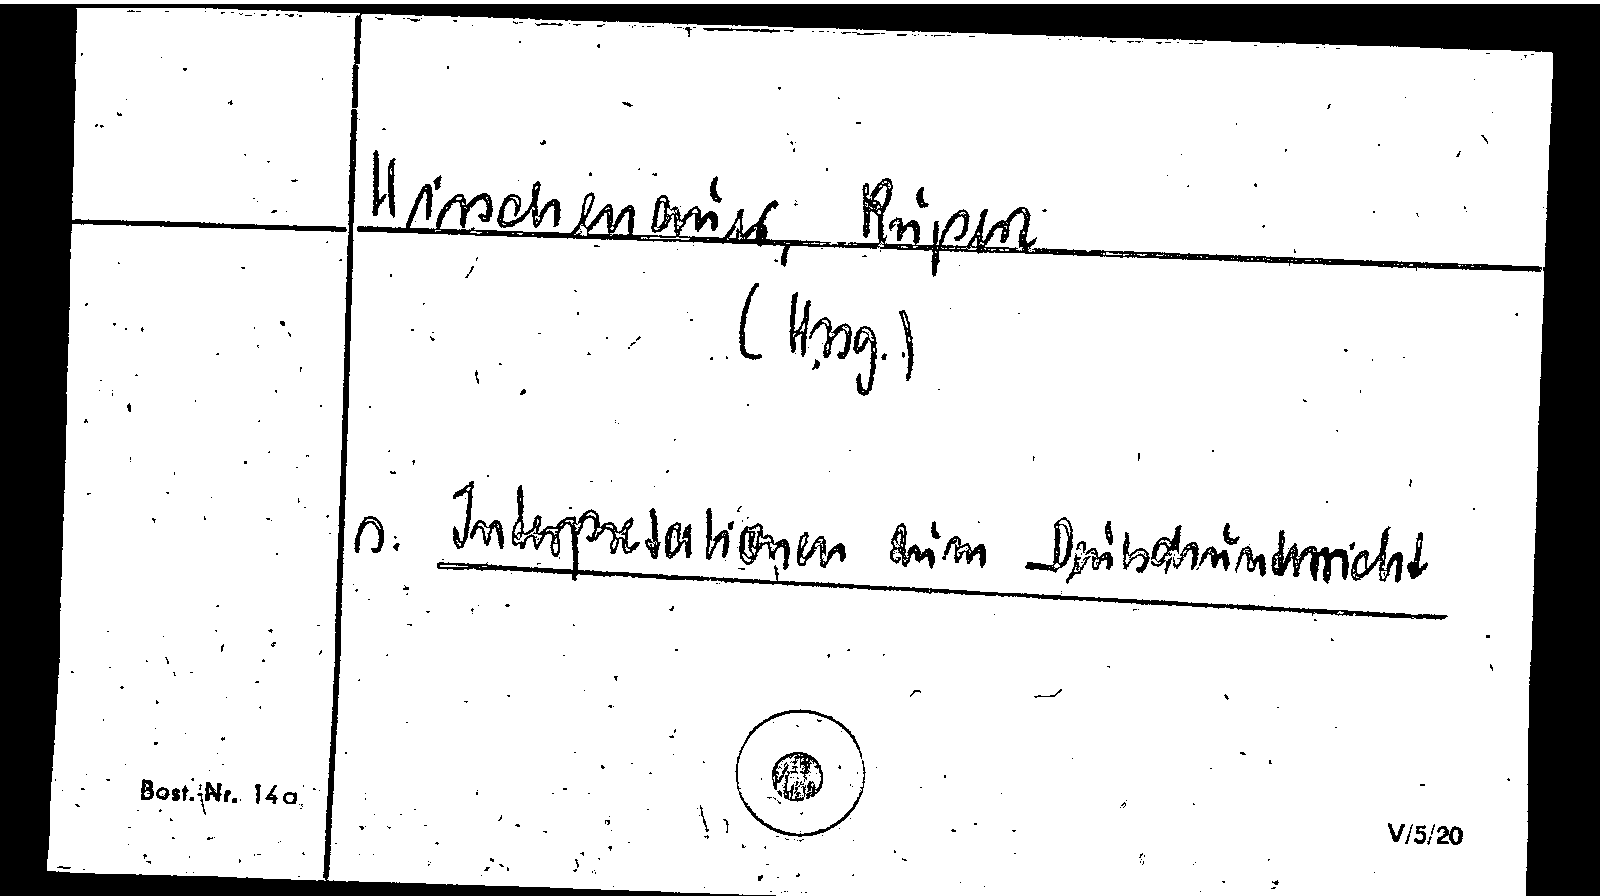 Hirschenauer, Rupert
(Hrsg.)
s. Interpretationen zum Deutschunterricht
Best.-Nr. 14a
V/5/20